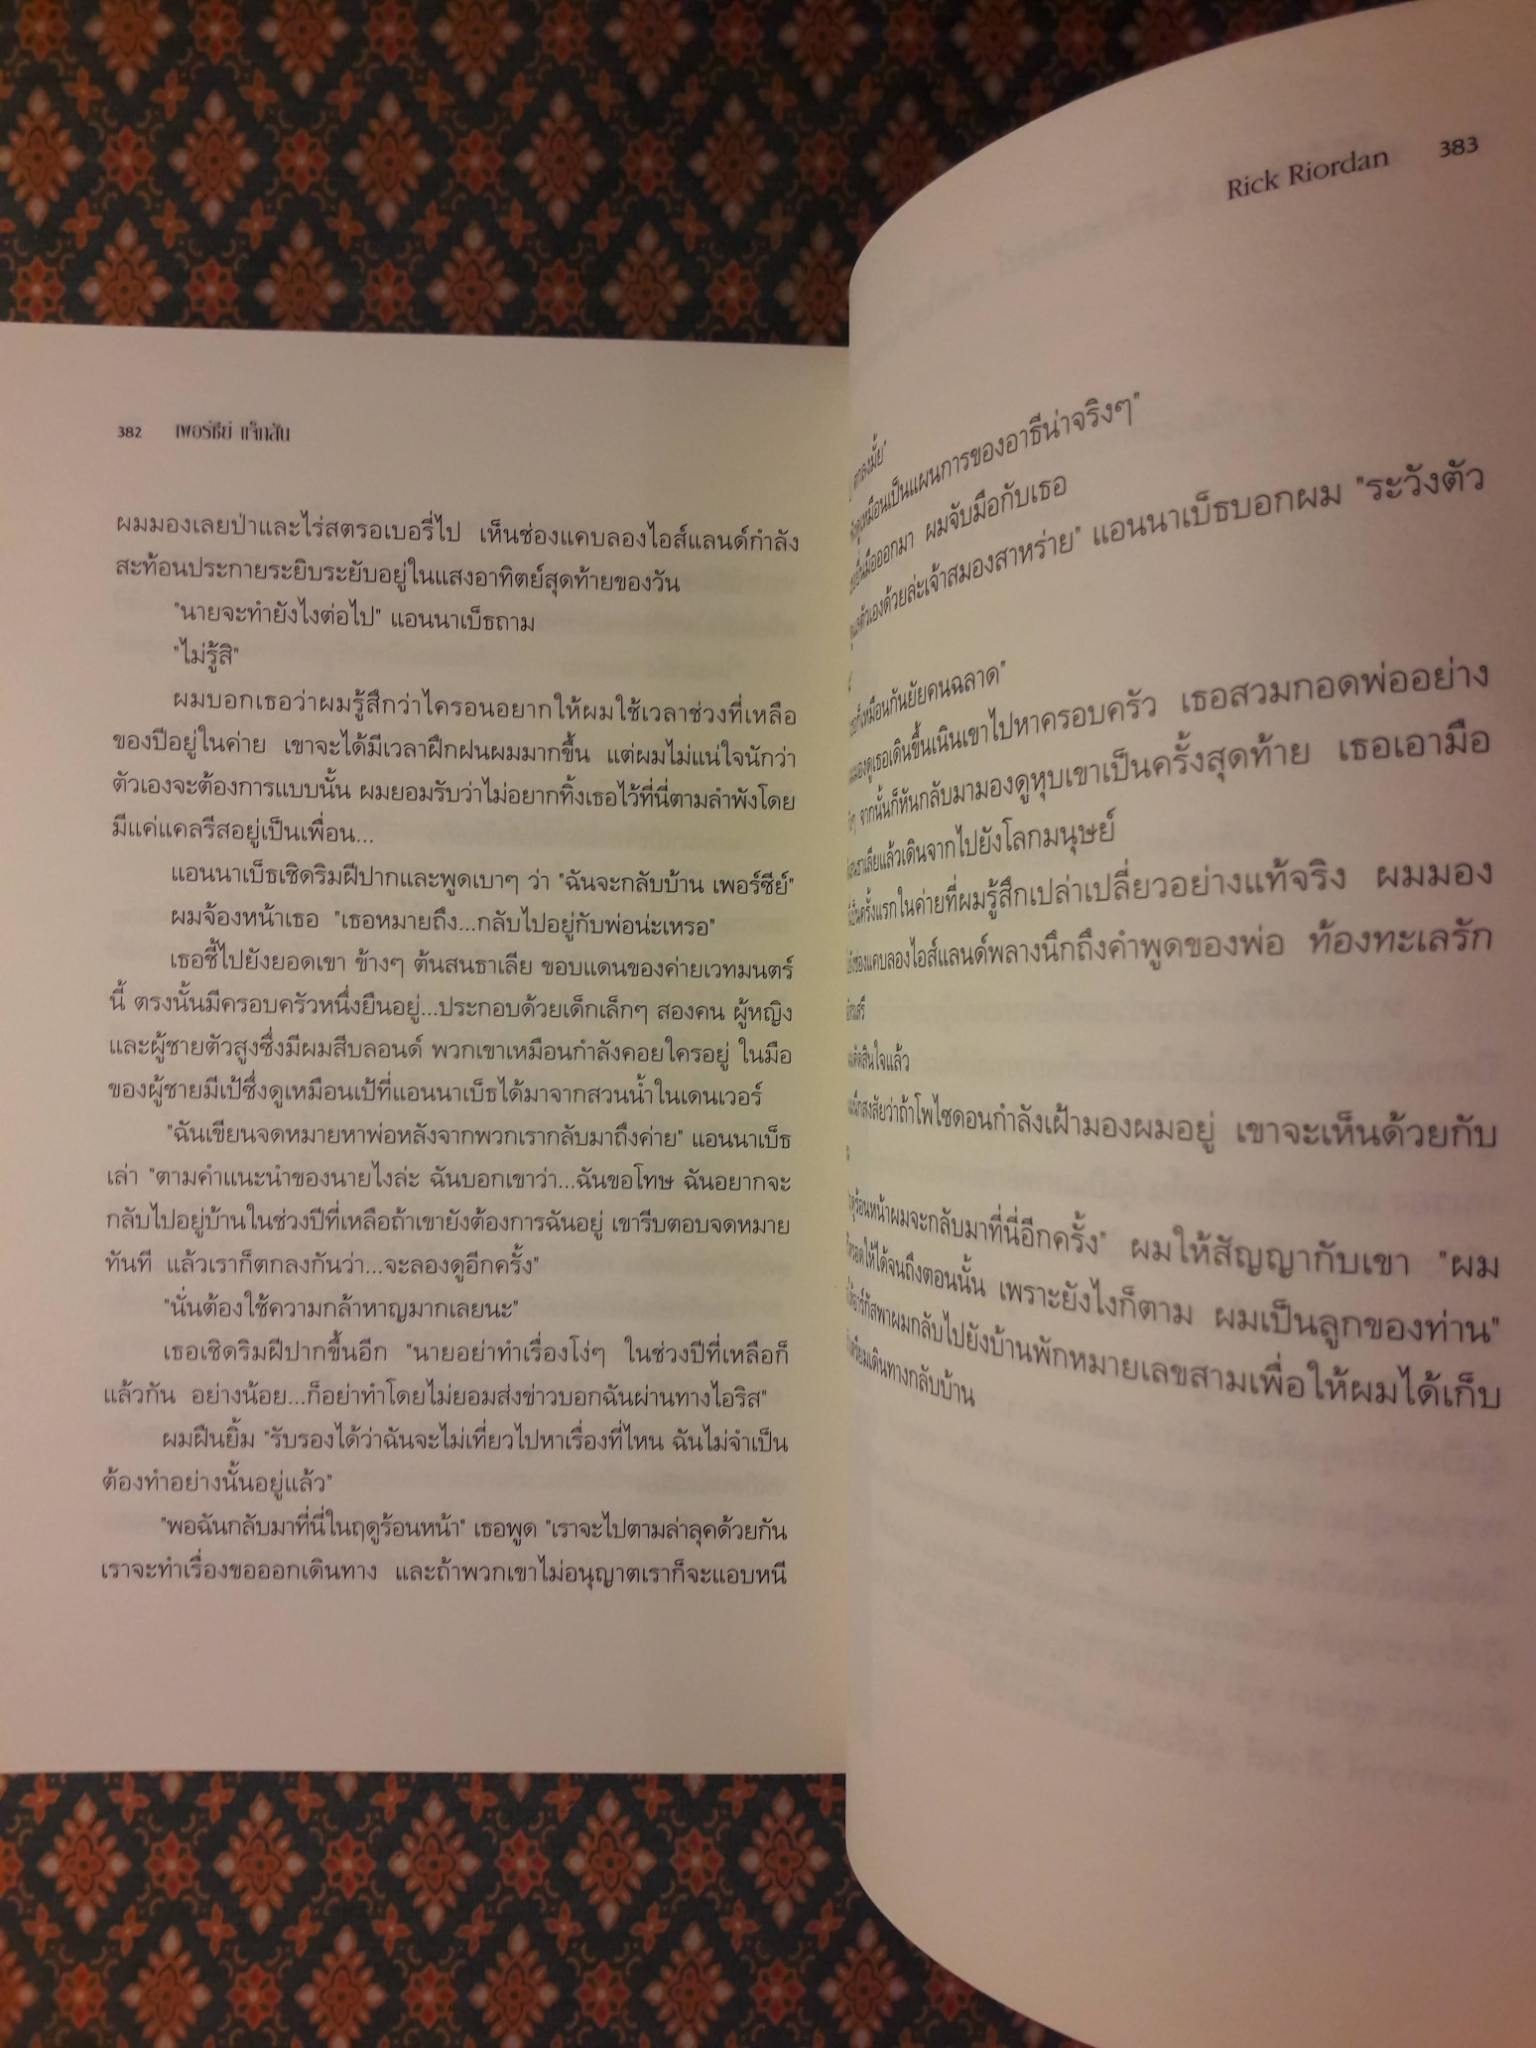 382 เพอร์ซีย์ แจ็กสัน
ผมมองเลยป่าและไร่สตรอเบอรี่ไป เห็นช่องแคบลองไอส์แลนด์กำลัง
สะท้อนประกายระยิบระยับอยู่ในแสงอาทิตย์สุดท้ายของวัน
"นายจะทำยังไงต่อไป" แอนนาเบ็ธถาม
"ไม่รู้สิ"
ผมบอกเธอว่าผมรู้สึกว่าไครอนอยากให้ผมใช้เวลาช่วงที่เหลือ
ของปีอยู่ในค่าย เขาจะได้มีเวลาฝึกฝนผมมากขึ้น แต่ผมไม่แน่ใจนักว่า
ตัวเองจะต้องการแบบนั้น ผมยอมรับว่าไม่อยากทิ้งเธอไว้ที่นี่ตามลำพังโดย
มีแค่แคลรีสอยู่เป็นเพื่อน...
แอนนาเบ็ธเชิดริมฝีปากและพูดเบาๆ ว่า "ฉันจะกลับบ้าน เพอร์ซีย์"
ผมจ้องหน้าเธอ "เธอหมายถึง...กลับไปอยู่กับพ่อน่ะเหรอ"
เธอชี้ไปยังยอดเขา ข้างๆ ต้นสนธาเลีย ขอบแดนของค่ายเวทมนตร์
นี้ ตรงนั้นมีครอบครัวหนึ่งยืนอยู่...ประกอบด้วยเด็กเล็กๆ สองคน ผู้หญิง
และผู้ชายตัวสูงซึ่งมีผมสีบลอนด์ พวกเขาเหมือนกำลังคอยใครอยู่ ในมือ
ของผู้ชายมีเป้ซึ่งดูเหมือนเป้ที่แอนนาเบ็ธได้มาจากสวนน้ำในเดนเวอร์
"ฉันเขียนจดหมายหาพ่อหลังจากพวกเรากลับมาถึงค่าย" แอนนาเบ็ธ
เล่า "ตามคำแนะนำของนายไงล่ะ ฉันบอกเขาว่า...ฉันขอโทษ ฉันอยากจะ
กลับไปอยู่บ้านในช่วงปีที่เหลือถ้าเขายังต้องการฉันอยู่ เขารีบตอบจดหมาย
ทันที แล้วเราก็ตกลงกันว่า...จะลองดูอีกครั้ง"
"นั่นต้องใช้ความกล้าหาญมากเลยนะ"
เธอเชิดริมฝีปากขึ้นอีก "นายอย่าทำเรื่องโง่ๆ ในช่วงปีที่เหลือก็
แล้วกัน อย่างน้อย...ก็อย่าทำโดยไม่ยอมส่งข่าวบอกฉันผ่านทางไอริส"
ผมฝืนยิ้ม "รับรองได้ว่าฉันจะไม่เที่ยวไปหาเรื่องที่ไหน ฉันไม่จำเป็น
ต้องทำอย่างนั้นอยู่แล้ว"
"พอฉันกลับมาที่นี่ในฤดูร้อนหน้า" เธอพูด "เราจะไปตามล่าลุคด้วยกัน
เราจะทำเรื่องขอออกเดินทาง และถ้าพวกเขาไม่อนุญาตเราก็จะแอบหนี
Rick Riordan 383
ตกลงมั้ย"
เหมือนเป็นแผนการของอาธีน่าจริงๆ"
ยื่นมือออกมา ผมจับมือกับเธอ
ตัวเองด้วยล่ะเจ้าสมองสาหร่าย" แอนนาเบ็ธบอกผม "ระวังตัว
เหมือนกันยัยคนฉลาด"
มองดูเธอเดินขึ้นเนินเขาไปหาครอบครัว เธอสวมกอดพ่ออย่าง
จากนั้นก็หันกลับมามองดูหุบเขาเป็นครั้งสุดท้าย เธอเอามือ
ธาเลียแล้วเดินจากไปยังโลกมนุษย์
ครั้งแรกในค่ายที่ผมรู้สึกเปล่าเปลี่ยวอย่างแท้จริง ผมมอง
ช่องแคบลองไอส์แลนด์พลางนึกถึงคำพูดของพ่อ ท้องทะเลรัก
ตัดสินใจแล้ว
สงสัยว่าถ้าโพไซดอนกำลังเฝ้ามองผมอยู่ เขาจะเห็นด้วยกับ
ร้อนหน้าผมจะกลับมาที่นี่อีกครั้ง" ผมให้สัญญากับเขา "ผม
รอดให้ได้จนถึงตอนนั้น เพราะยังไงก็ตาม ผมเป็นลูกของท่าน"
อาร์กัสพาผมกลับไปยังบ้านพักหมายเลขสามเพื่อให้ผมได้เก็บ
เตรียมเดินทางกลับบ้าน